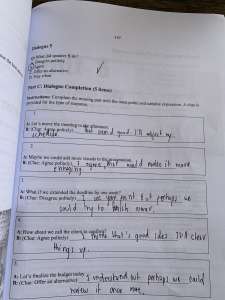 Dialogue 5
Agree
Part C: Dialogue Completion (5 items)
Instructions: Complete the missing part with the most polite and suitable expression. A clue is
provided for the type of response.
1
A: Let's move the meeting to the afternoon.
B: (Clue: Agree politely) that sound good I'll adjust my
schedule.
2
B: (Clue: Agree politely) I agree, that would make it more
engaging
3
A: What if we extended the deadline by one week?
B: (Clue: Disagree politely) I see your point but perhaps we
could try to finish sooner.
4
A: How about we call the client to
B: (Clue: Agree politely) I think that's good idea. It'll clear
things up.
5
A: Let's finalize the budget today.
B: (Clue: Offer an alternative) I understand but perhaps we could
review it once more.